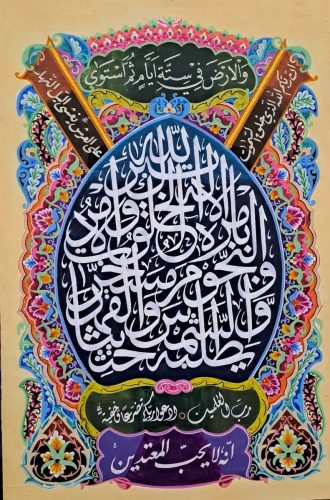 ان ربكم الله الذي خلق السموات
والارض في ستة ايام ثم استوى
على العرش يغشي اليل النهار
يطلبه حثيثا والشمس والقمر
والنجوم مسخرات
بامره الا له الخلق والامر
تبارك الله
رب العلمين ادعوا ربكم تضرعا وخفية
انه لا يحب المعتدين